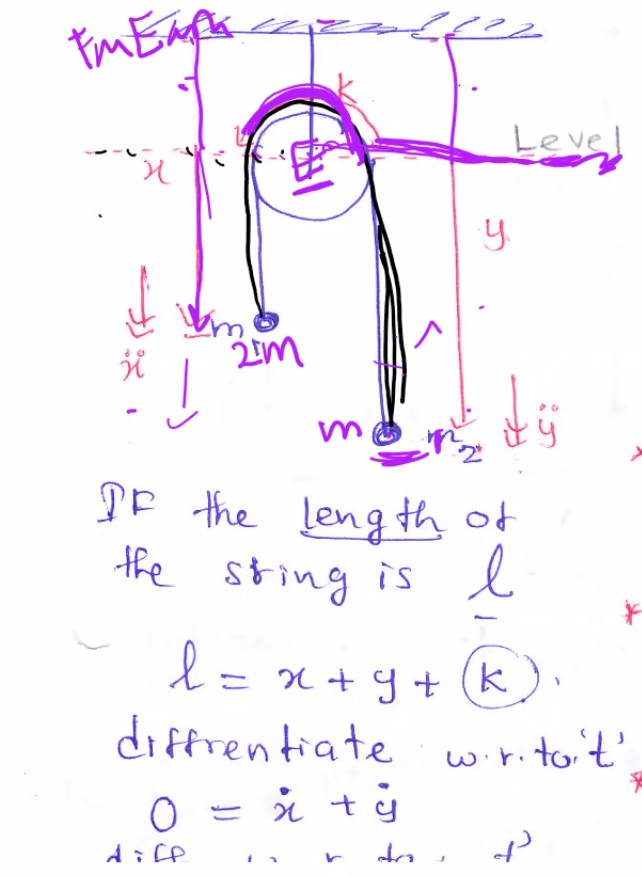 FmEarth
K
Level
E
x
y
m
2m
ẍ
m
m2
ÿ
IF the length of
the string is l
l = x + y + k.
diffrentiate w.r.to.'t'
0 = ẋ + ẏ